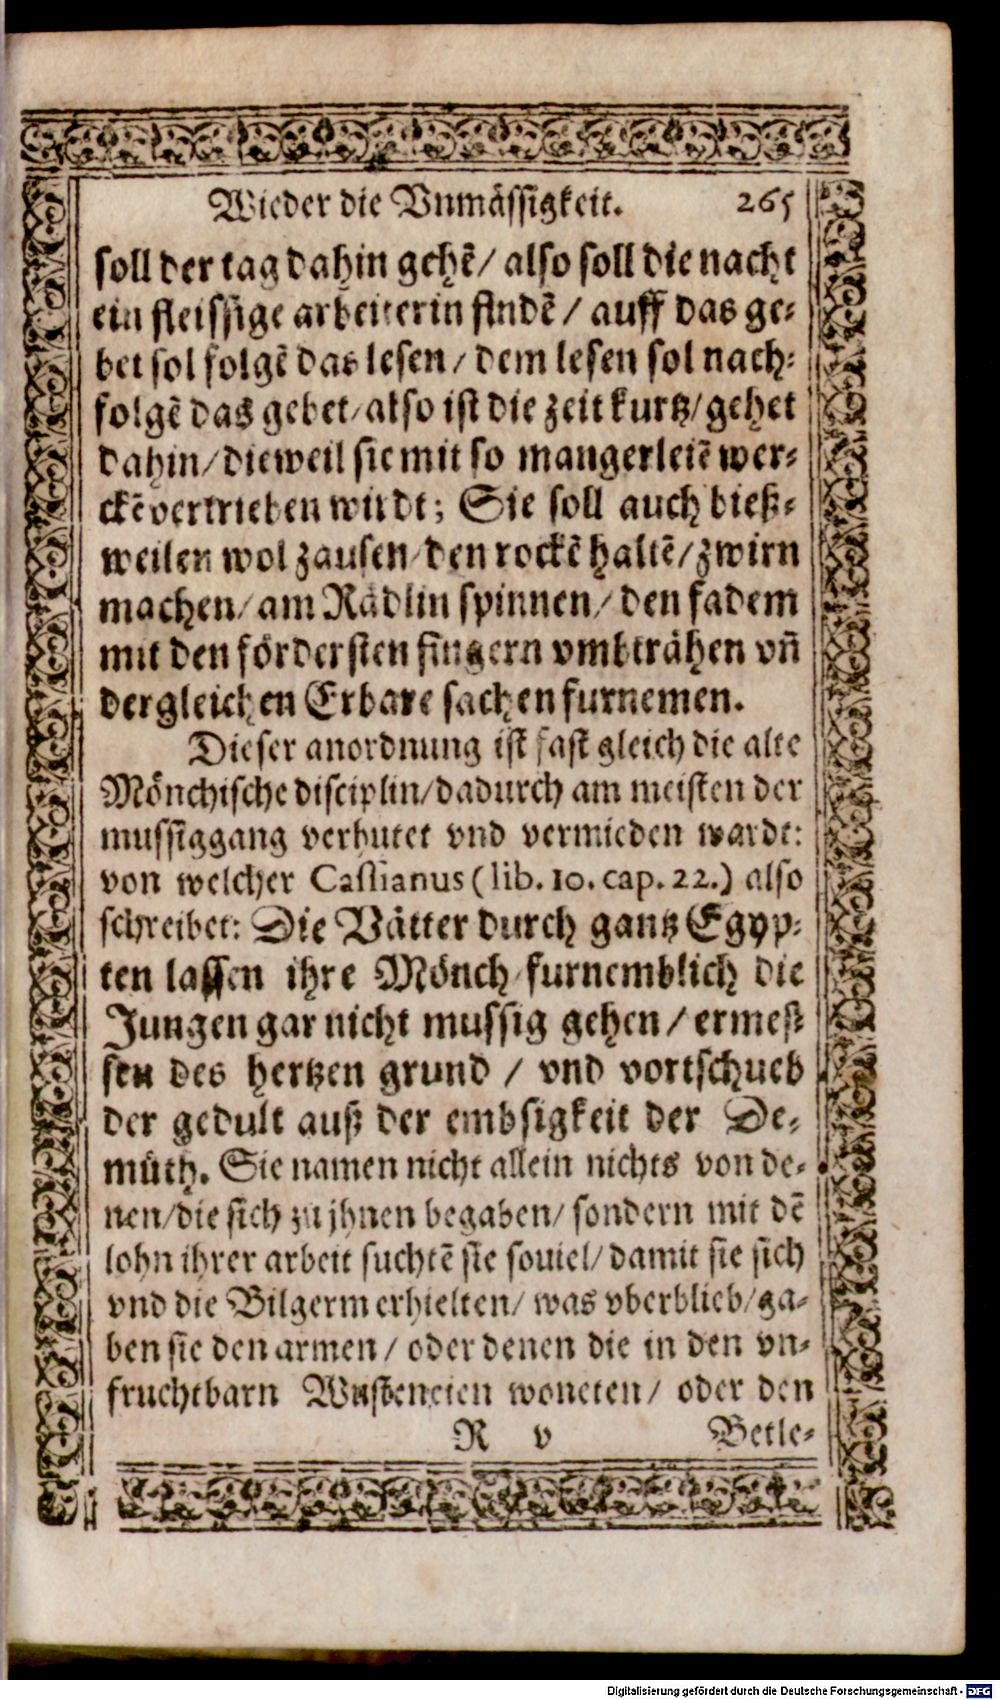 Wieder die Vnmässigkeit. 265
soll der tag dahin gehẽ/ also soll die nacht
ein fleissige arbeiterin findẽ / auff das ge-
bet sol folgẽ das lesen / dem lesen sol nach-
folgẽ das gebet/ also ist die zeit kurtz/ gehet
dahin/ dieweil sie mit so mangerleiẽ wer-
ckẽ vertrieben wirdt; Sie soll auch bieß-
weilen wol zausen/ den rockẽ haltẽ/ zwirn
machen/ am Rädlin spinnen/ den fadem
mit den fördersten fingern vmbträhen vñ
dergleichen Erbare sachen furnemen.
Dieser anordnung ist fast gleich die alte
Mönchische disciplin/ dadurch am meisten der
mussiggang verhutet vnd vermieden wardt:
von welcher Cassianus (lib. 10. cap. 22.) also
schreibet: Die Vätter durch gantz Egyp-
ten lassen ihre Mönch furnemblich die
Jungen gar nicht mussig gehen/ ermes-
sen des hertzen grund / vnd vortschueb
der gedult auß der embsigkeit der De-
müth. Sie namen nicht allein nichts von de-
nen/ die sich zu jhnen begaben/ sondern mit dẽ
lohn ihrer arbeit suchtẽ sie souiel/ damit sie sich
vnd die Bilgerm erhielten/ was vberblieb/ ga-
ben sie den armen / oder denen die in den vn-
fruchtbarn Wusteneien woneten/ oder den
R v Betle-
Digitalisierung gefördert durch die Deutsche Forschungsgemeinschaft - DFG